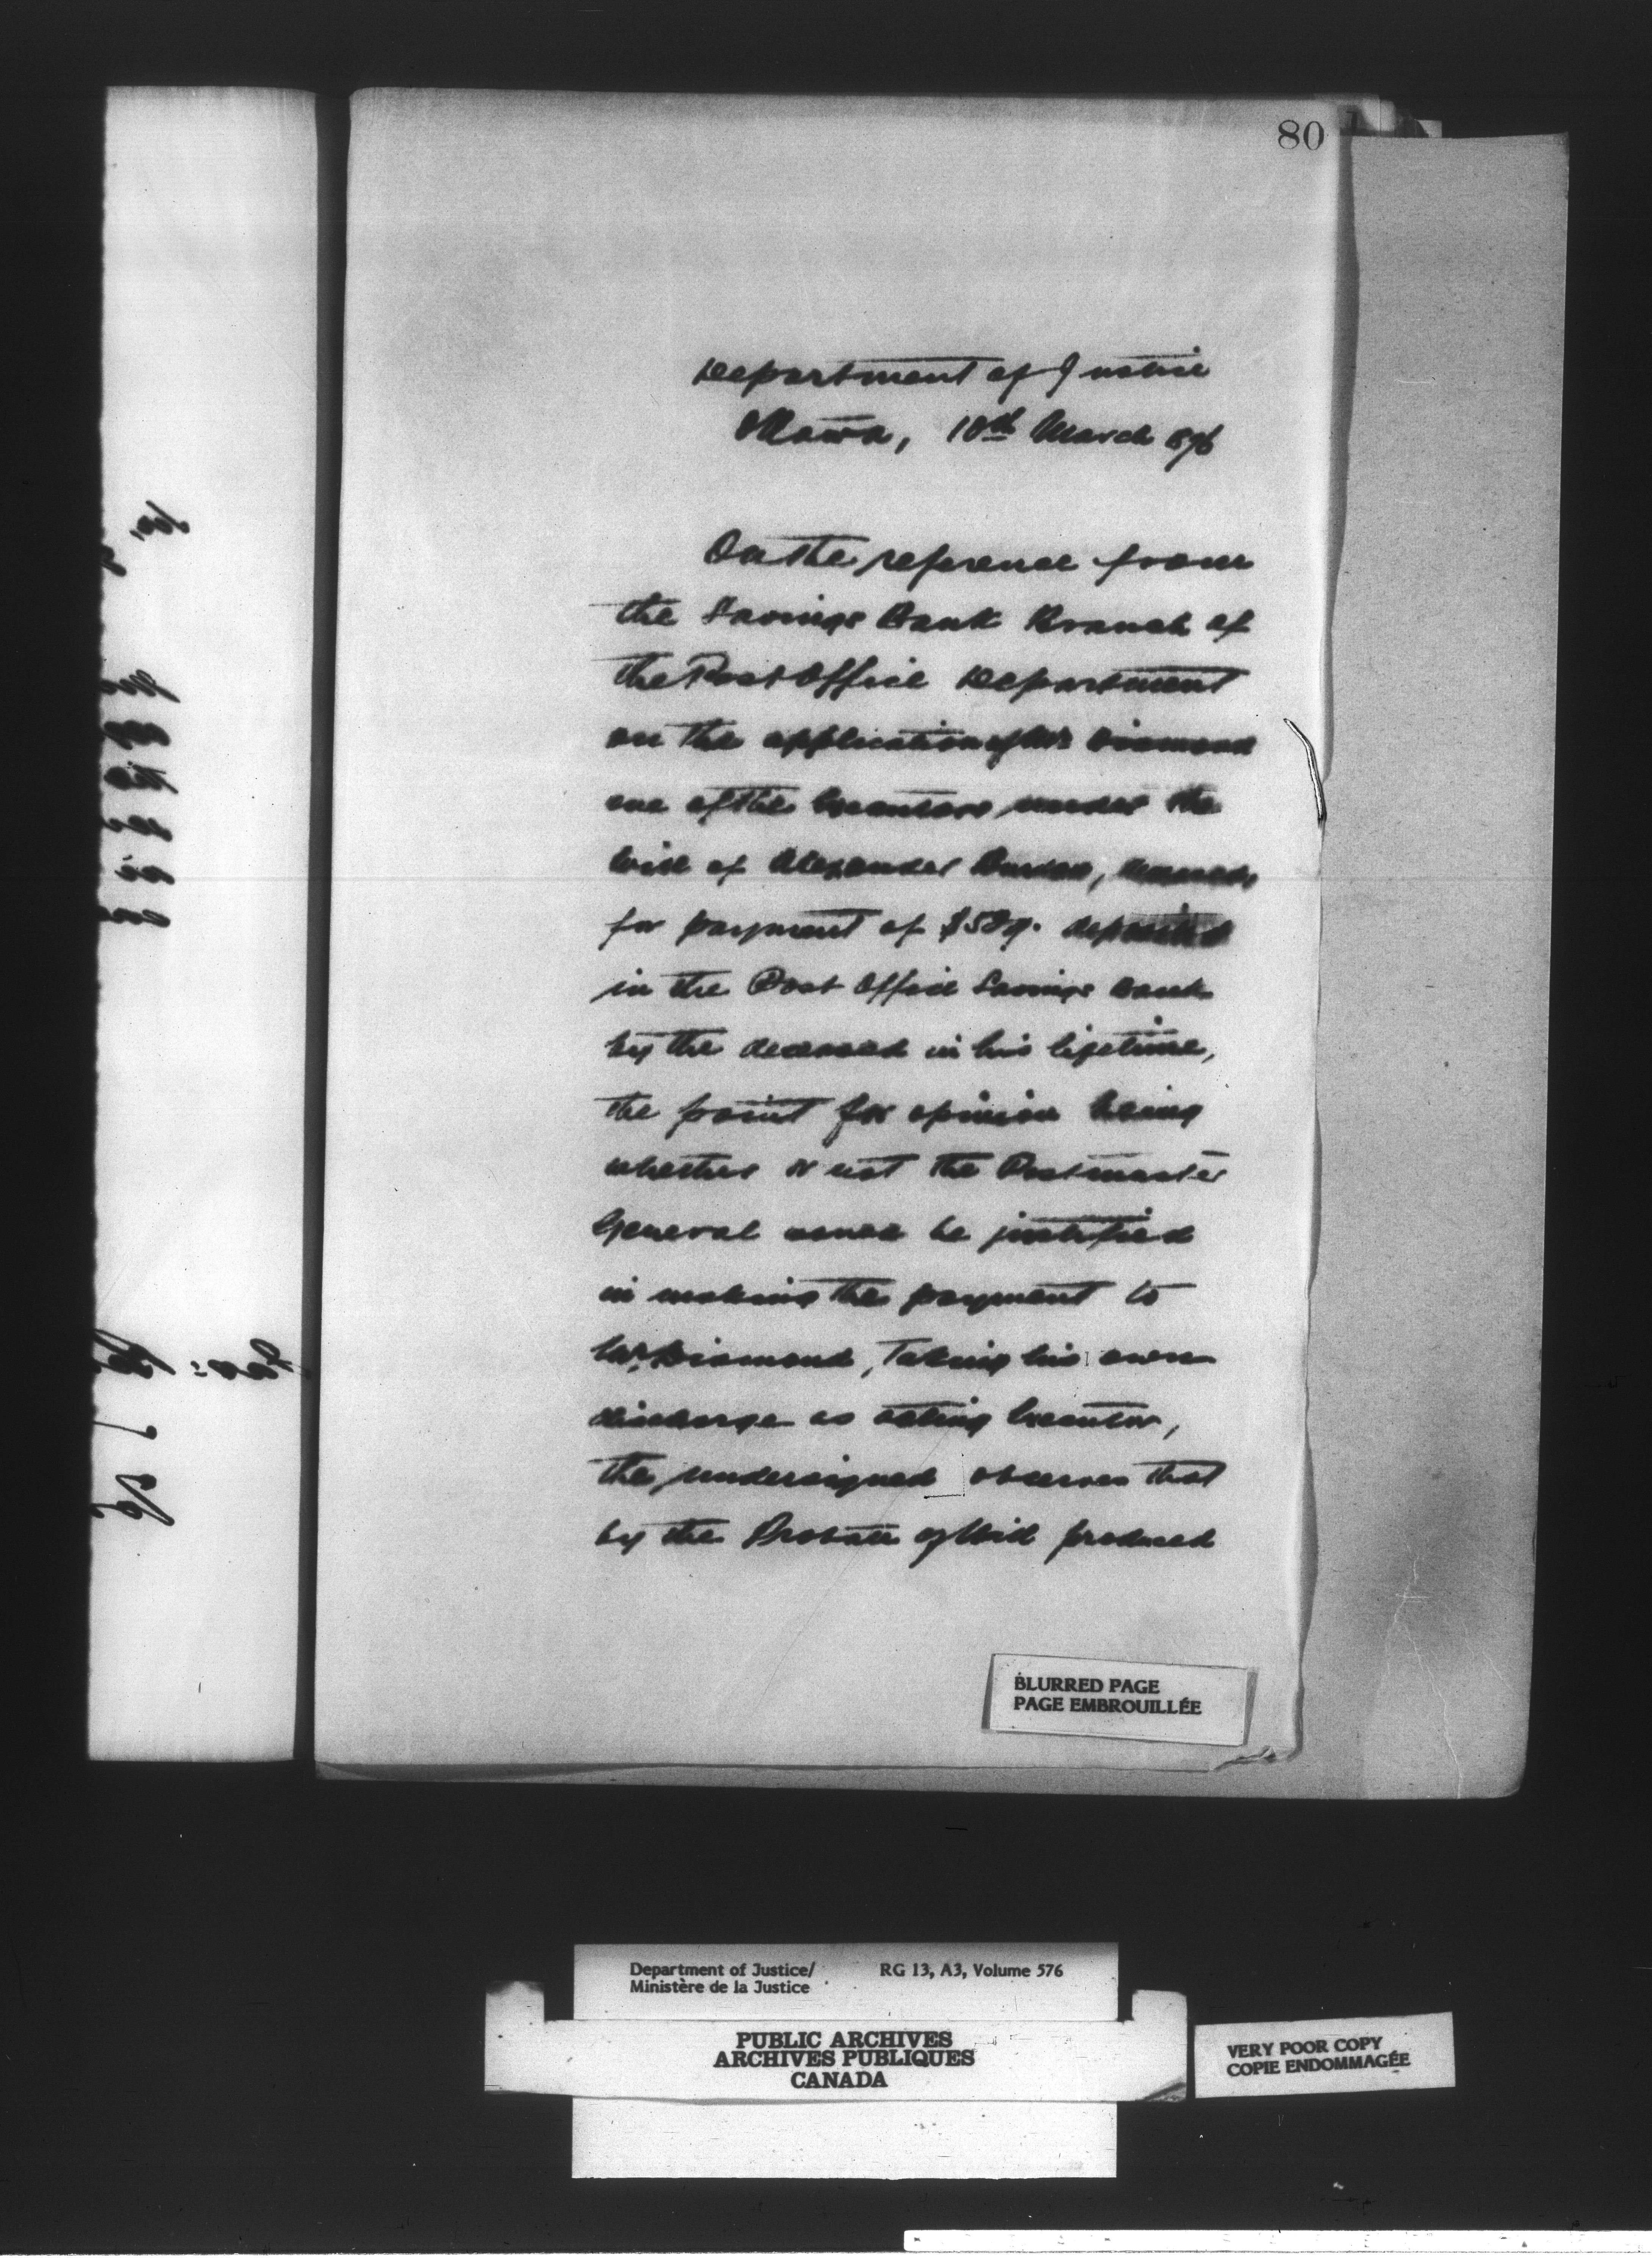 80
Department of Justice
Ottawa, 10th March 1876
On the reference from
the Savings Bank Branch of
the Post Office Department
on the application of Mr Diamond
one of the Executors under the
Will of Alexander, deceased,
for payment of deposited
in the Post Office Savings Bank
by the deceased in his lifetime,
the point for opinion being
whether or not the Postmaster
General would be justified
in making the payment to
Mr Diamond, taking his own
discharge as acting Executor,
the undersigned observes that
by the Probate of Will produced
BLURRED PAGE
PAGE EMBROUILLÉE
Department of Justice/ RG 13, A3, Volume 576
Ministère de la Justice
PUBLIC ARCHIVES
ARCHIVES PUBLIQUES
CANADA
VERY POOR COPY
COPIE ENDOMMAGÉE